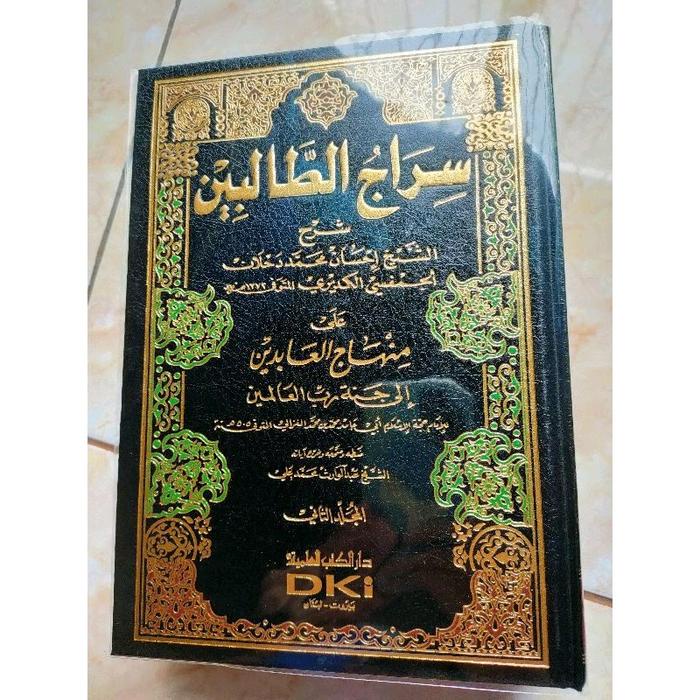 سِرَاجُ الطَّالِبِيْن
شرح
الشيخ إحسان محمد دحلان
الجمفسي الكديري المتوفى ١٣٧٢ هـ
على
منهاج العابدين
إلى جنة رب العالمين
للإمام حجة الإسلام أبي حامد محمد بن محمد الغزالي المتوفى ٥٠٥ هـ
ضبطه وصححه وخرج آياته
الشيخ عبد الوارث محمد علي
المجلد الثاني
دار الكتب العلمية
DKi
بيروت - لبنان